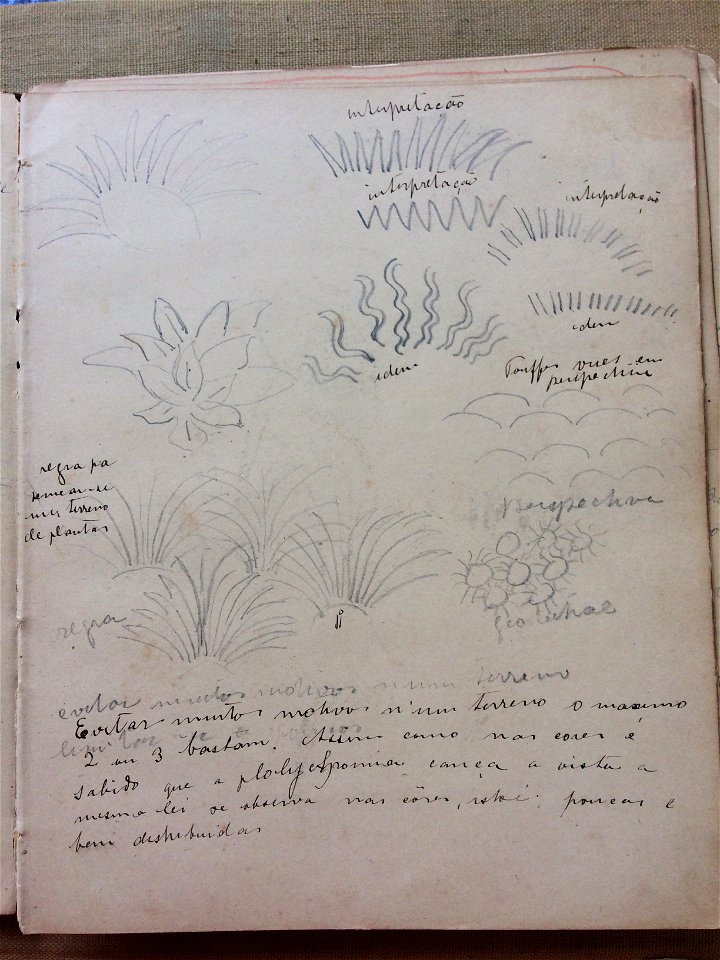 interpretação
interpretação
interpretação
idem
idem
Touffes vues en
perspective
regra pa
semear-se
um terreno
de plantas
Perspectiva
regra
evitar muitos motivos n'um terreno
Evitar muitos motivos n'um terreno o maximo
2 ou 3 bastam. Assim como nas cores é
sabido que a cança a vista a
mesma lei se observa nas côres, isto é: poucas e
bem distribuidas